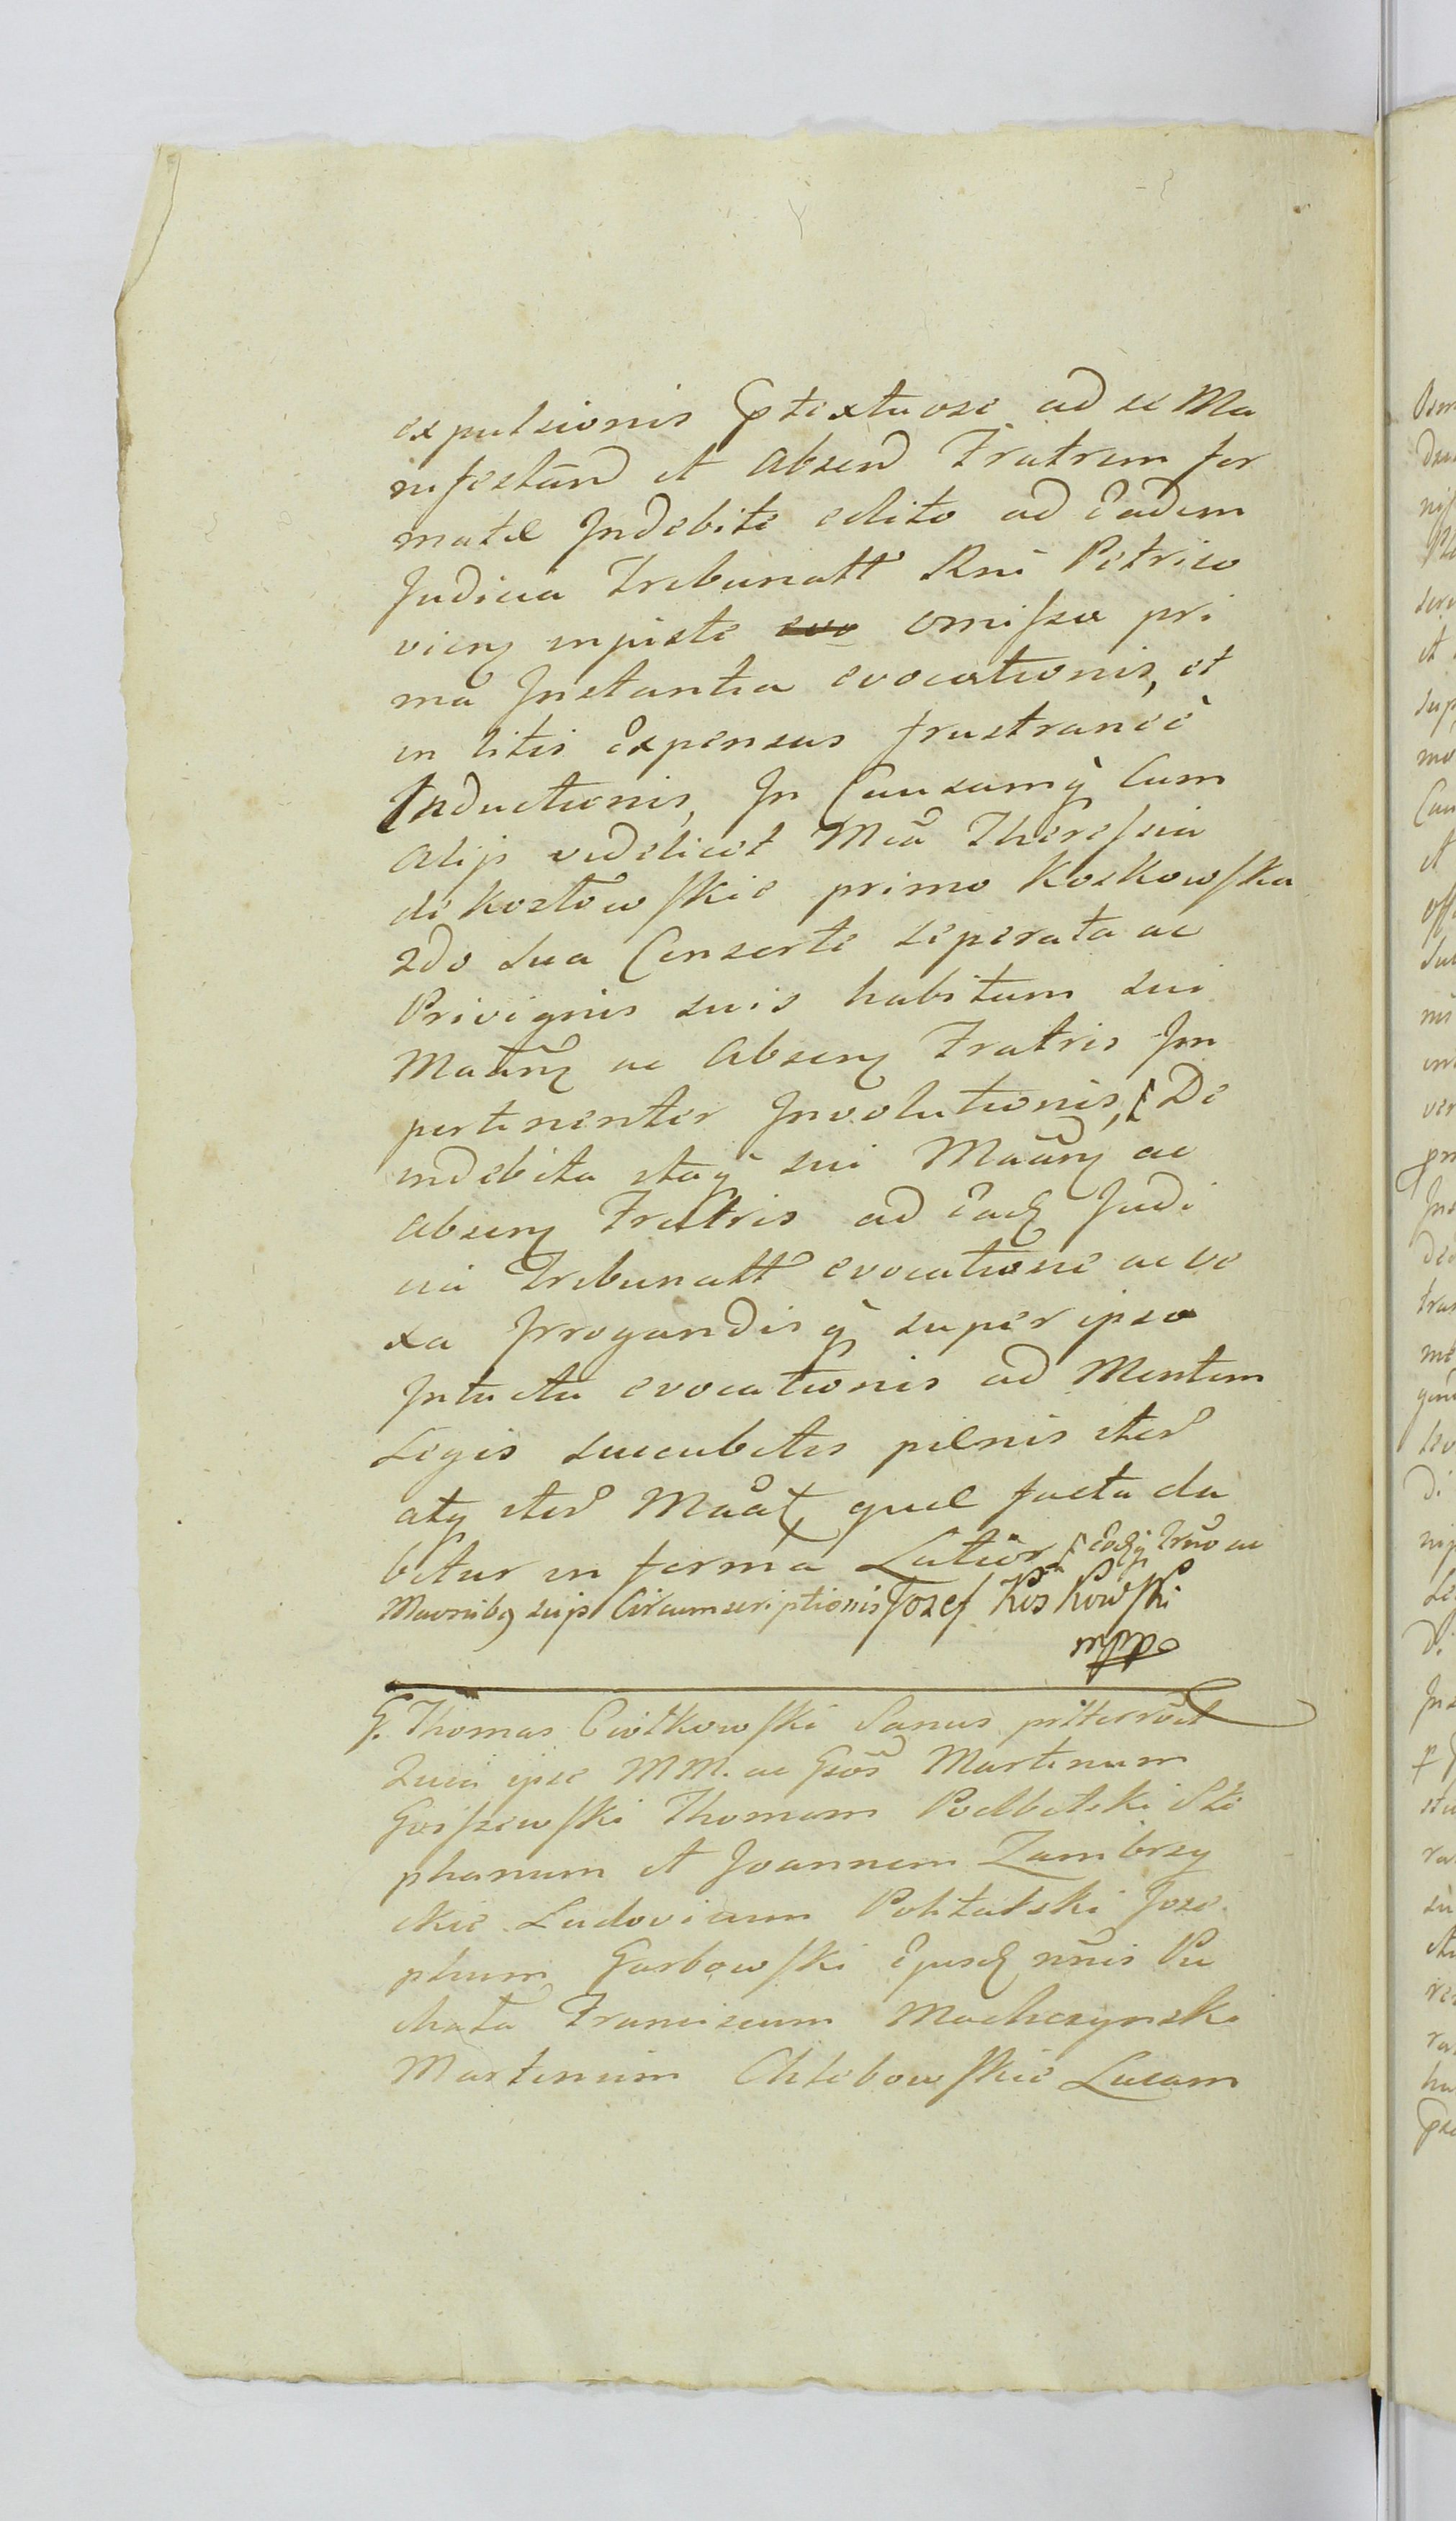 expulsionis Ptextuose ad se Ma
nifestand et Absend Fratrem for
matæ Indebite edito ad Eadem
Judicia Tribunatt Rni Petrico
vien injuste omissa pri
ma Instantia evocationis, et
in litis Expensas frustraneè
Inductionis, In Causamq Cum
alijs videlicet Mca Theressia
de Kozłowskie primo Koskowska
2do sua Consorte seperata ac
Privignis suis habitum sui
Maan ac Absen Fratris Im
pertinenter Involutionis, De
indebita itaq sui Maan ac
absen Fratris ad Ead Judi
cia Tribunatt evocatione ac ve
xa Irrogandisq super ipso
Intuitu evocationis ad Mentem
Legis succubitis pænis iterd
atq iterd Maat, quæ facta da
bitur in forma Latior
Maonibq suis Circumscriptionis Jozef Koskowski
mpp
G. Thomas Ciołkowski Sanus
Quia ipse MM. ac Gsos Martinum
Gosszewski Thomam Podbielski Ste
phanum et Joannem Zambrzy
ckie Ludovicum Pohlatski Jose
phum Garbowski Ejusd nnis Pu
chała Franciscum Mochczynski
Martinum Chlebowskie Lucam